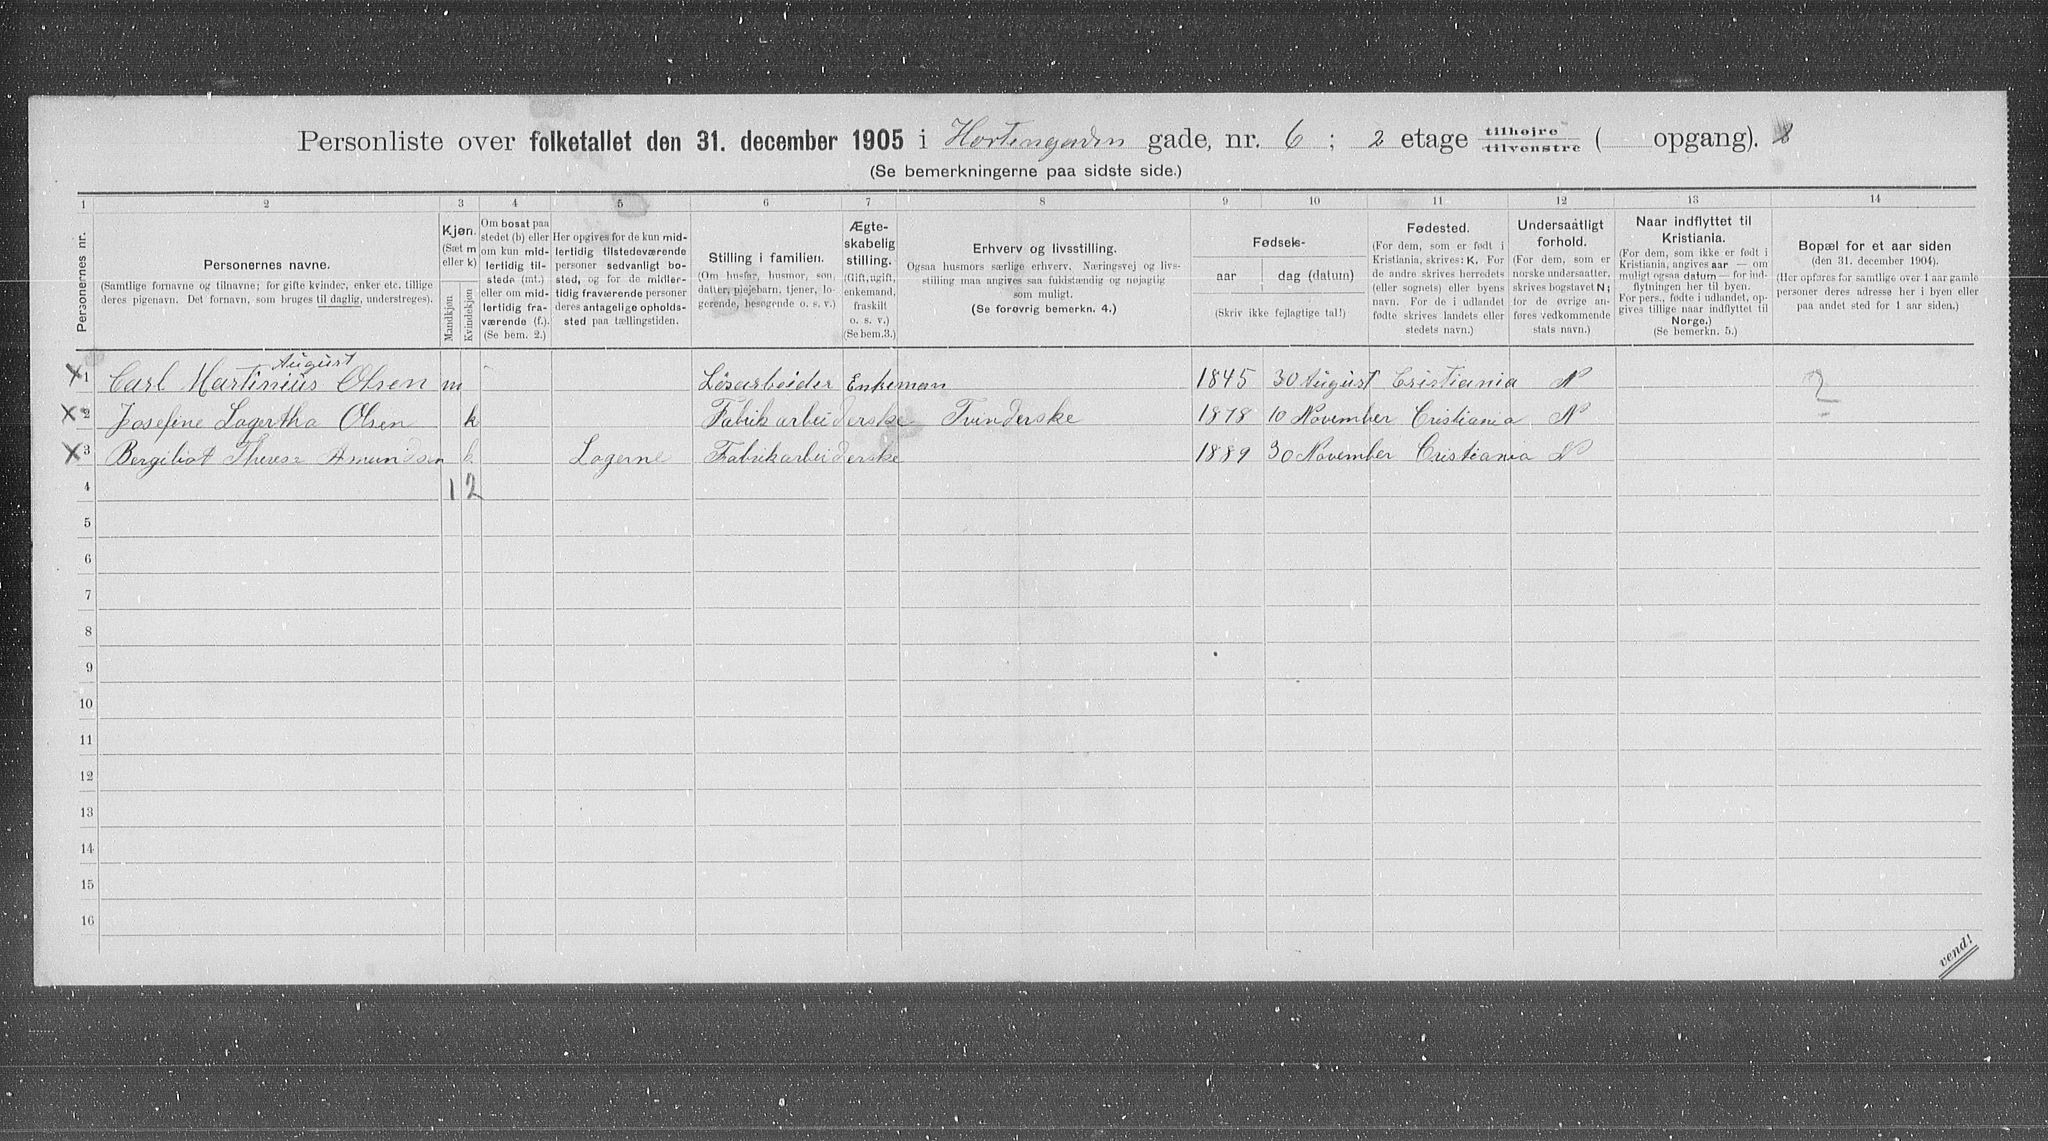 Personliste over folketallet den 31. december 1905 i Hortengaden gade, nr. 6; 2 etage tilhøjre tilvenstre ( opgang).
(Se bemerkningerne paa sidste side.)
1 2 3 4 5 6 7 8 9 10 11 12 13 14
Personernes nr.
Personernes navne.
(Samtlige fornavne og tilnavne; for gifte kvinder, enker etc. tillige
deres pigenavn. Det fornavn, som bruges til daglig, understreges).
Kjøn.
(Sæt m
eller k)
Mandkjøn.
Kvindekjøn
Om bosat paa
stedet (b) eller
om kun mid-
lertidig til-
stede (mt.)
eller om mid-
lertidig fra-
værende (f.).
(Se bem. 2.)
Her opgives for de kun mid-
lertidig tilstedeværende
personer sedvanligt bo-
sted, og for de midler-
tidig fraværende personer
deres antagelige opholds-
sted paa tællingstiden.
Stilling i familien.
(Om husfar, husmor, søn,
datter, plejebarn, tjener, lo-
gerende, besøgende o. s. v.)
Ægte-
skabelig
stilling.
(Gift, ugift,
enkemand,
fraskilt
o. s. v.)
(Se bem.3.)
Erhverv og livsstilling.
Ogsaa husmors særlige erhverv. Næringsvej og livs-
stilling maa angives saa fuldstændig og nøjagtig
som muligt.
(Se forøvrig bemerkn. 4.)
Fødsels-
aar dag (datum)
(Skriv ikke fejlagtige tal!)
Fødested.
(For dem, som er født i
Kristiania, skrives: K. For
de andre skrives herredets
(eller sognets) eller byens
navn. For de i udlandet
fødte skrives landets eller
stedets navn.)
Undersaatligt
forhold.
(For dem, som er
norske undersaatter,
skrives bogstavet N;
for de øvrige an-
føres vedkommende
stats navn.)
Naar indflyttet til
Kristiania.
(For dem, som ikke er født i
Kristiania, angives aar — om
muligt ogsaa datum — for ind-
flytningen her til byen.
For pers., fødte i udlandet, op-
gives tillige naar indflyttet til
Norge.)
(Se bemerkn. 5.)
Bopæl for et aar siden
(den 31. december 1904).
(Her opføres for samtlige over 1 aar gamle
personer deres adresse her i byen eller
paa andet sted for 1 aar siden.)
August
x 1 Carl Martinius Olsen m Løsarbeider Enkeman 1845 30 August Cristiania N 2
x 2 Josefine Lagertha Olsen k Fabrikarbeiderske Tvinderske 1878 10 November Cristiania N
x 3 Bergibot Therese Amundsen k Logerne Fabrikarbeiderske 1889 30 November Cristiania N
4 1 2
5
6
7
8
9
10
11
12
13
14
15
16
vend!